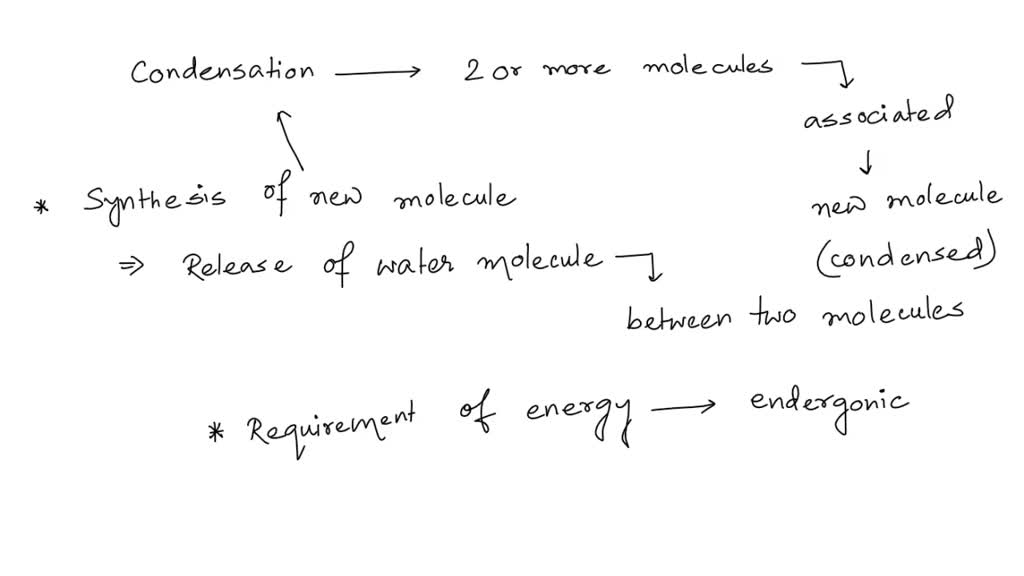 Condensation → 2 or more molecules
associated
↓
* Synthesis of new molecule
new molecule
⇒ Release of water molecule
(condensed)
between two molecules
* Requirement of energy → endergonic